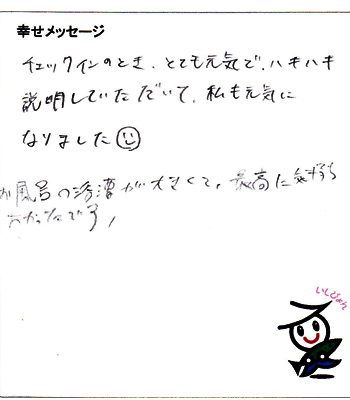 幸せメッセージ
チェックインのとき、とても元気で、ハキハキ
説明していただいて、私も元気に
なりました
お風呂の浴漕が大きくて、最高に気持ち
よかったです！
いしぴょん